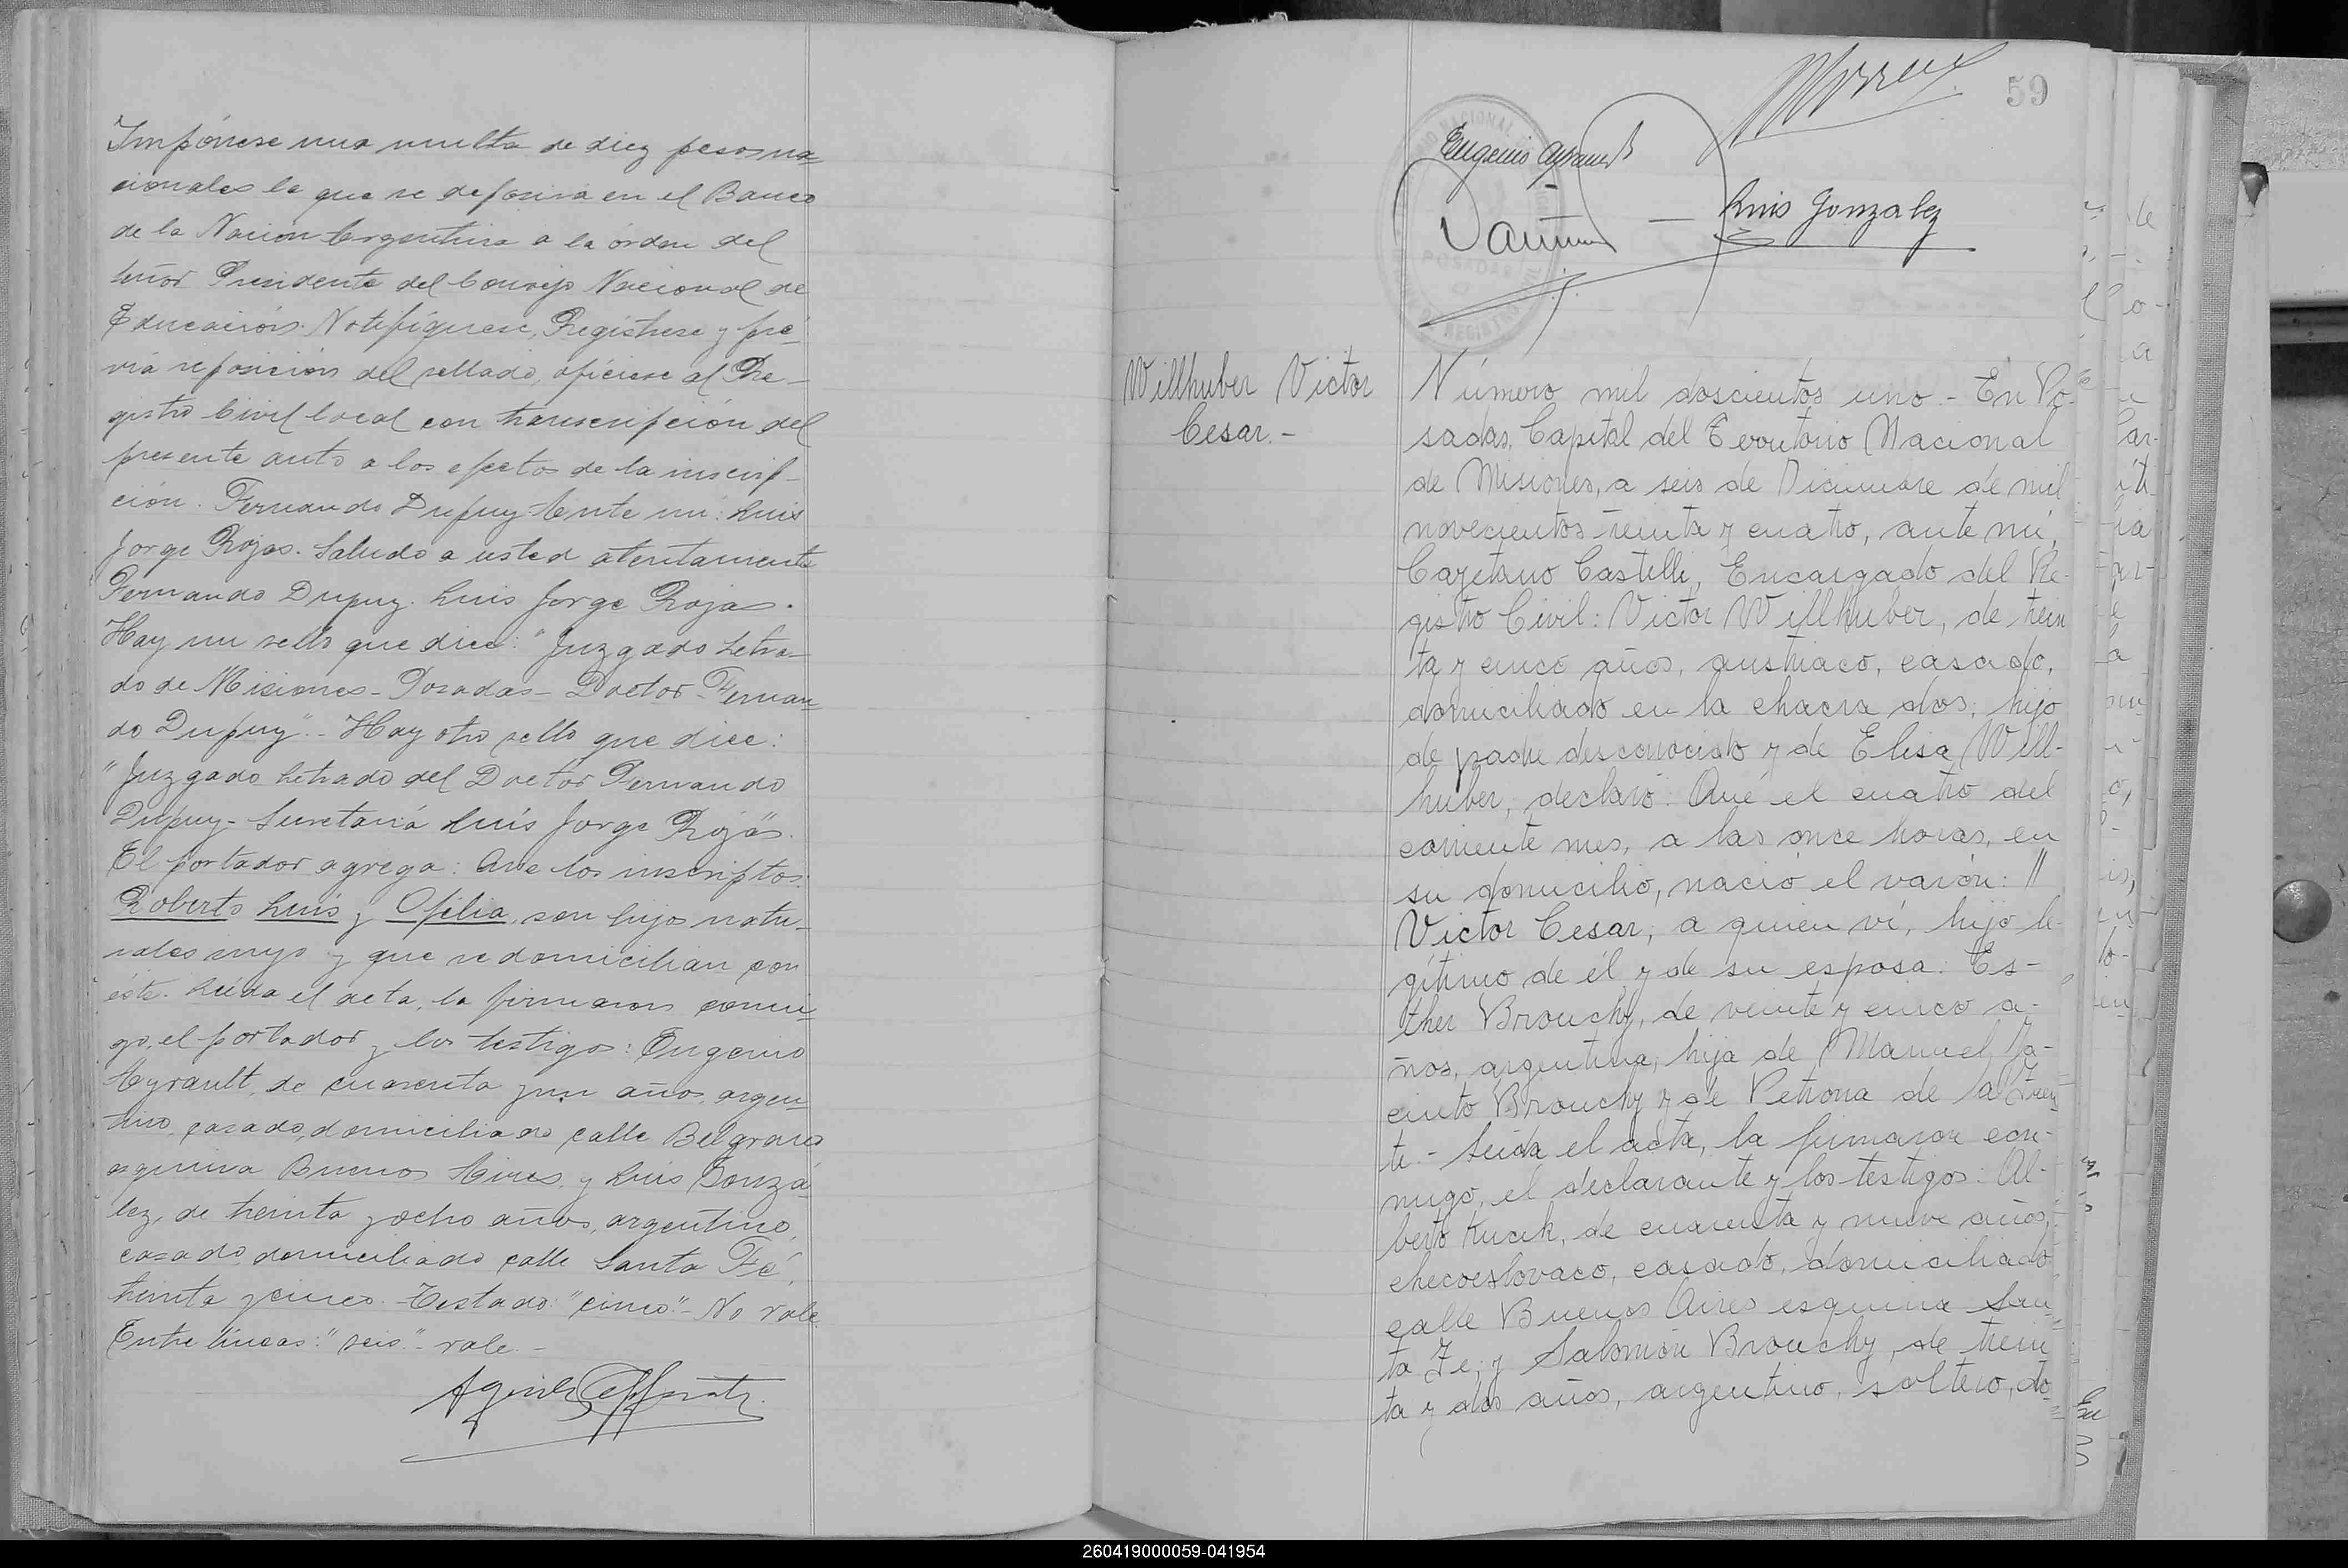 Impónese una multa de diez pesos na
cionales la que se deposira en el Banco
de la Nacion Argentina a la órden del
señor Presidente del Consejo Nacional de
Educación. Notifíquese, Regístrese y pré
via reposición del sellado, ofíciese al Re-
gistro Civil local con transcripción del
presente auto a los efectos de la inscrip-
ción. Fernando Dupuy Ante mi: Luis
Jorge Rojas. Saludo a usted atentamente
Fernando Dupuy. Luis Jorge Rojas.
Hay un sello que dice: "Juzgado Letra-
do de Misiones - Posadas - Doctor Fernan
do Dupuy" - Hay otro sello que dice:
"Juzgado Letrado del Doctor Fernando
Dupuy - Secretaria Luis Jorge Rojas".
El portador agrega: Que los inscriptos:
Roberto Luis y Ofelia, son hijos natu-
rales suyo y que se domicilian con
éste. Leída el acta, la firmaron conmi-
go, el portador y los testigos: Eugenio
Ayrault, de cuarenta y un años, argen-
tino, casado, domiciliado calle Belgrano
esquina Buenos Aires, y Luis Gonzá
lez, de treinta y ocho años, argentino,
casado, domiciliado calle Santa Fé,
treinta y cinco. Testado: "cinco" - No vale
Entre líneas: "seis" - vale -
59
Eugenio Ayrault
Luis Gonzalez
POSADAS
Willhuber Victor
Cesar.-
Número mil doscientos uno - En Po-
sadas, Capital del Territorio Nacional
de Misiones, a seis de Diciembre de mil
novecientos treinta y cuatro, ante mí,
Cayetano Castelli, Encargado del Re-
gistro Civil: Victor Willhuber, de trein
ta y cinco años, austriaco, casado,
domiciliado en la chacra dos; hijo
de padre desconocido y de Elisa Will-
huber; declaró: Que el cuatro del
corriente mes, a las once horas, en
su domicilio, nació el varón: //
Victor Cesar, a quien ví, hijo le-
gítimo de él y de su esposa: Es-
ther Brouchy, de veinte y cinco a-
ños, argentina, hija de Manuel Ja-
cinto Brouchy y de Petrona de la Fuen
te.- Leída el acta, la firmaron con-
migo, el declarante y los testigos: Al-
berto Kucik, de cuarenta y nueve años,
checoeslovaco, casado, domiciliado
calle Buenos Aires esquina San-
ta Fe; y Salomón Brouchy, de trein
ta y dos años, argentino, soltero, do-
260419000059-041954